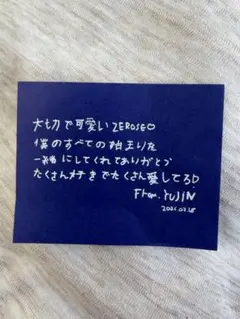 大切で可愛いZEROSE♡
僕のすべての始まりを
一緒にしてくれてありがとう
たくさん好きでたくさん愛してる♡
From. YUJIN